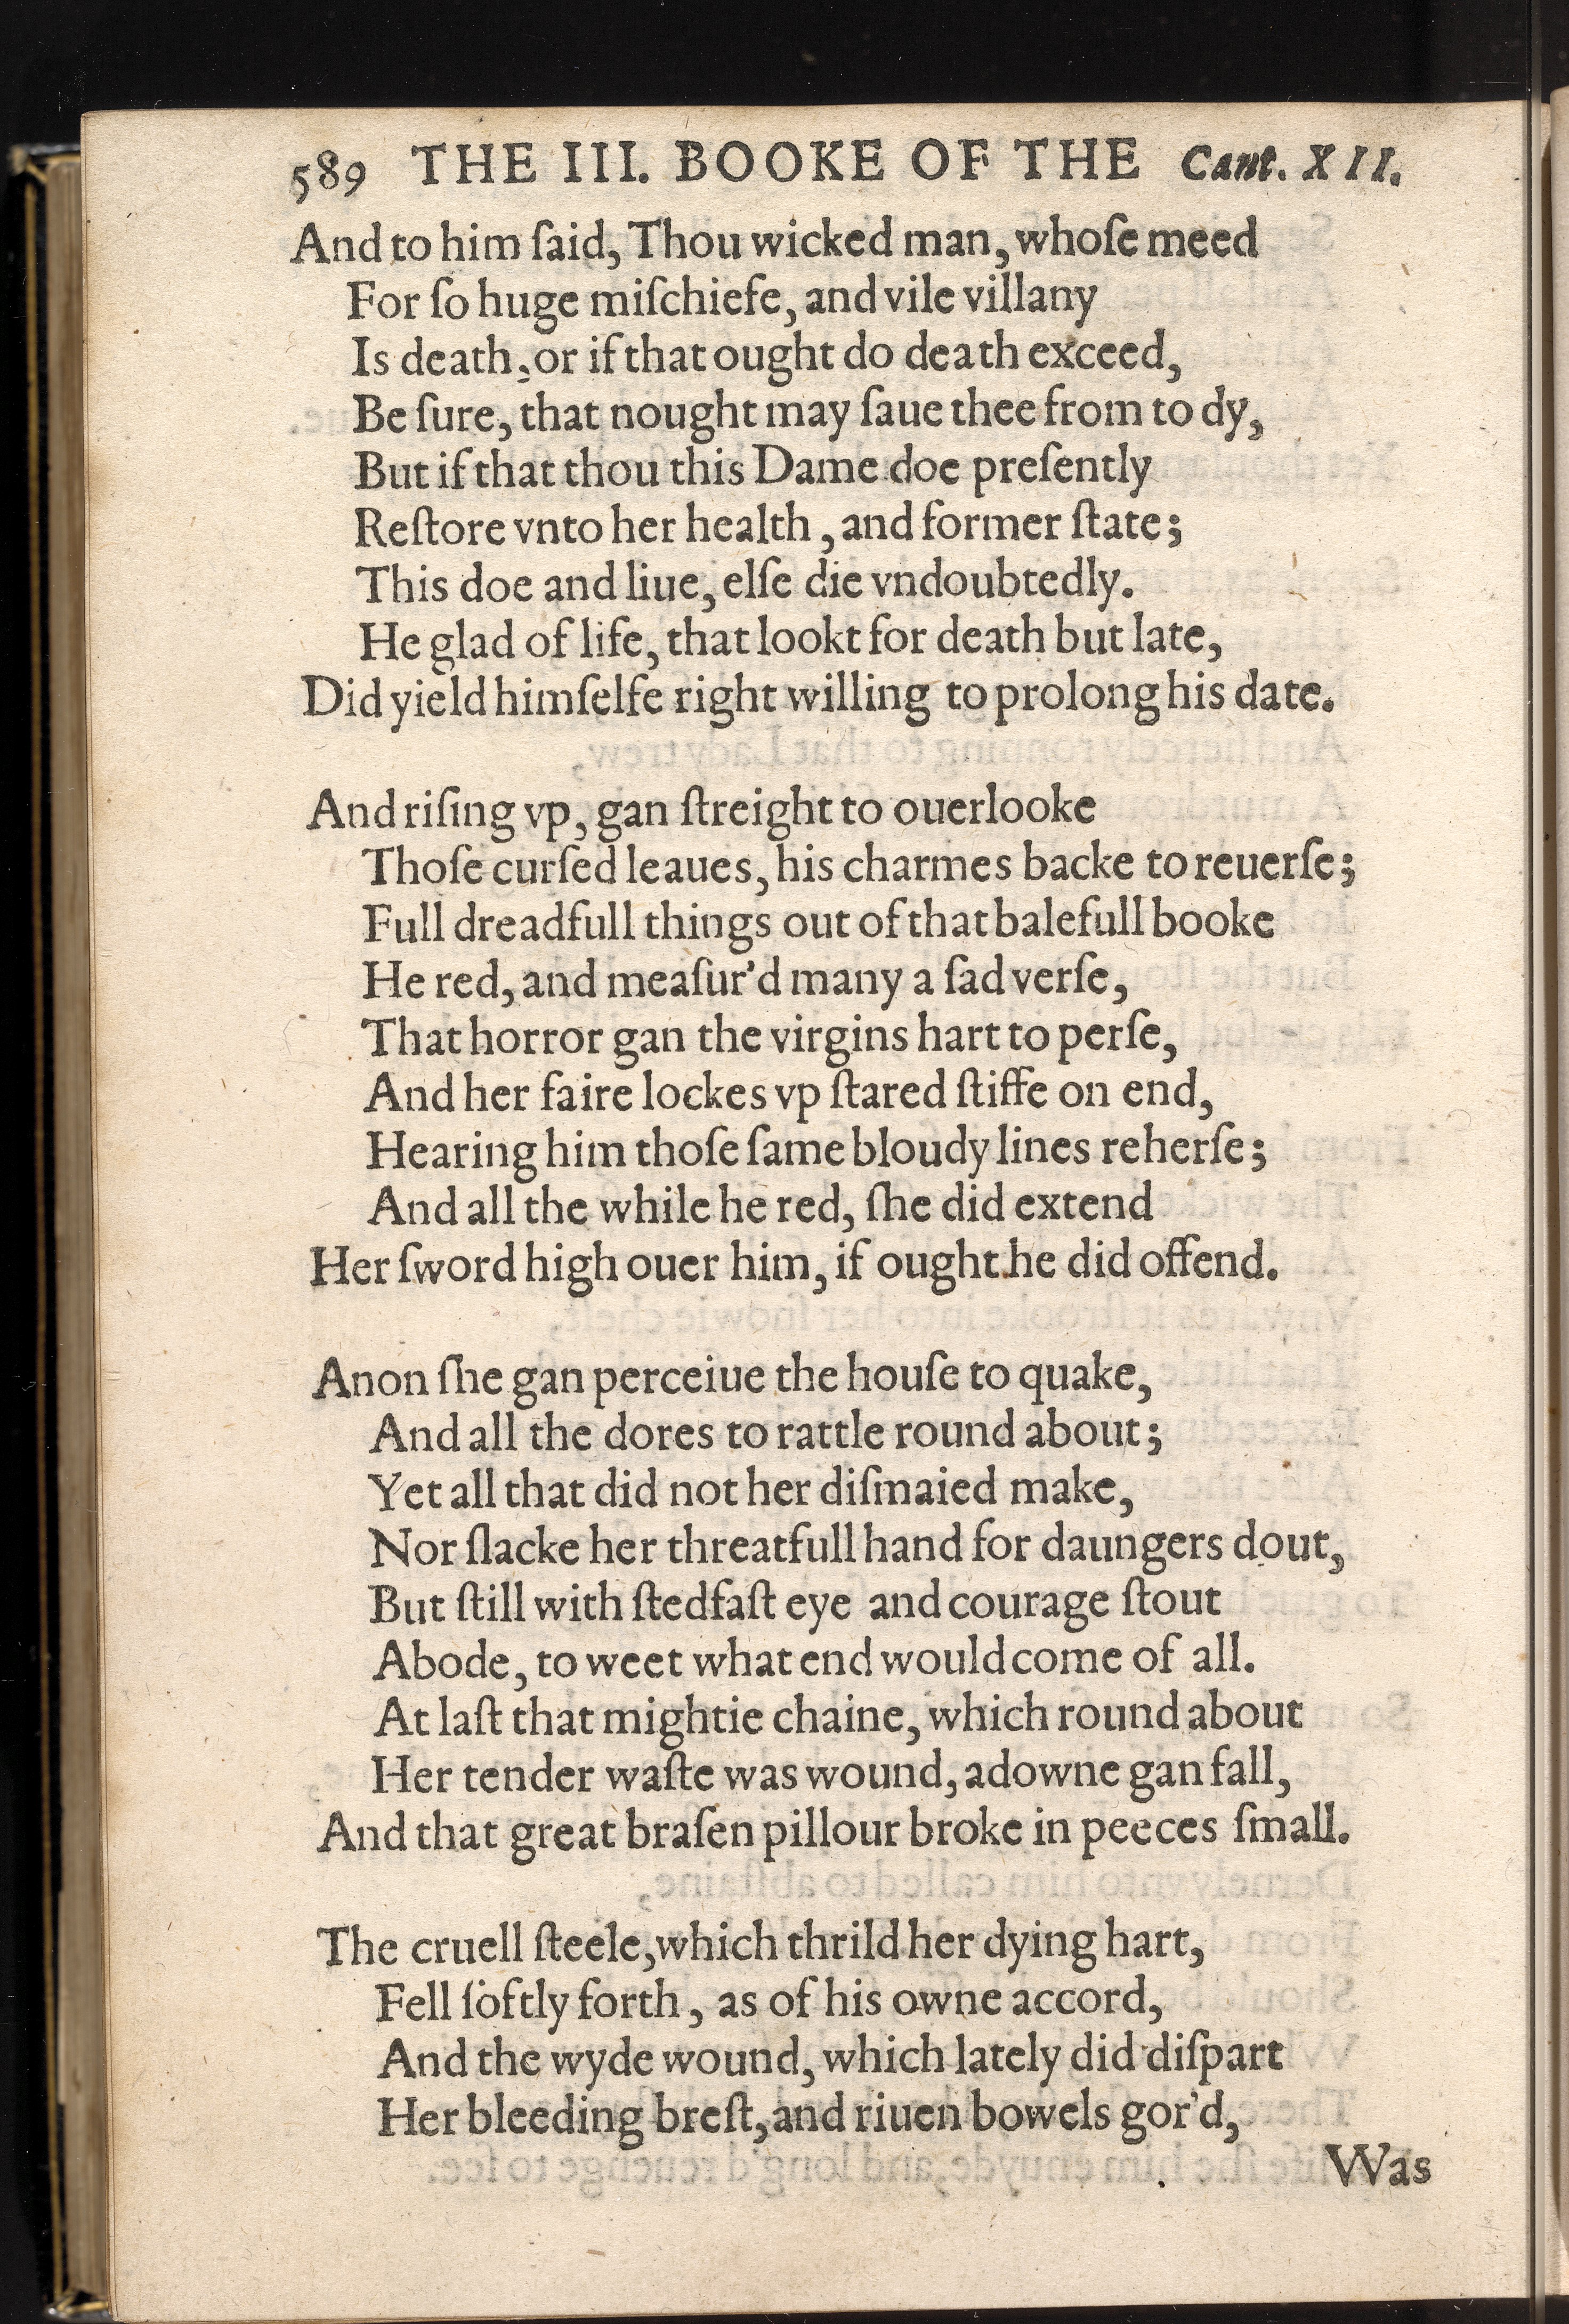 589 THE III. BOOKE OF THE Cant. XII.
And to him ſaid, Thou wicked man, whoſe meed
For ſo huge miſchiefe, and vile villany
Is death, or if that ought do death exceed,
Be ſure, that nought may ſaue thee from to dy,
But if that thou this Dame doe preſently
Reſtore vnto her health, and former ſtate;
This doe and liue, elſe die vndoubtedly.
He glad of life, that lookt for death but late,
Did yield himſelfe right willing to prolong his date.

And riſing vp, gan ſtreight to ouerlooke
Thoſe curſed leaues, his charmes backe to reuerſe;
Full dreadfull things out of that balefull booke
He red, and meaſur'd many a ſad verſe,
That horror gan the virgins hart to perſe,
And her faire lockes vp ſtared ſtiffe on end,
Hearing him thoſe ſame bloudy lines reherſe;
And all the while he red, ſhe did extend
Her ſword high ouer him, if ought he did offend.

Anon ſhe gan perceiue the houſe to quake,
And all the dores to rattle round about;
Yet all that did not her diſmaied make,
Nor ſlacke her threatfull hand for daungers dout,
But ſtill with ſtedfaſt eye and courage ſtout
Abode, to weet what end would come of all.
At laſt that mightie chaine, which round about
Her tender waſte was wound, adowne gan fall,
And that great braſen pillour broke in peeces ſmall.

The cruell ſteele, which thrild her dying hart,
Fell ſoftly forth, as of his owne accord,
And the wyde wound, which lately did diſpart
Her bleeding breſt, and riuen bowels gor'd,
Was